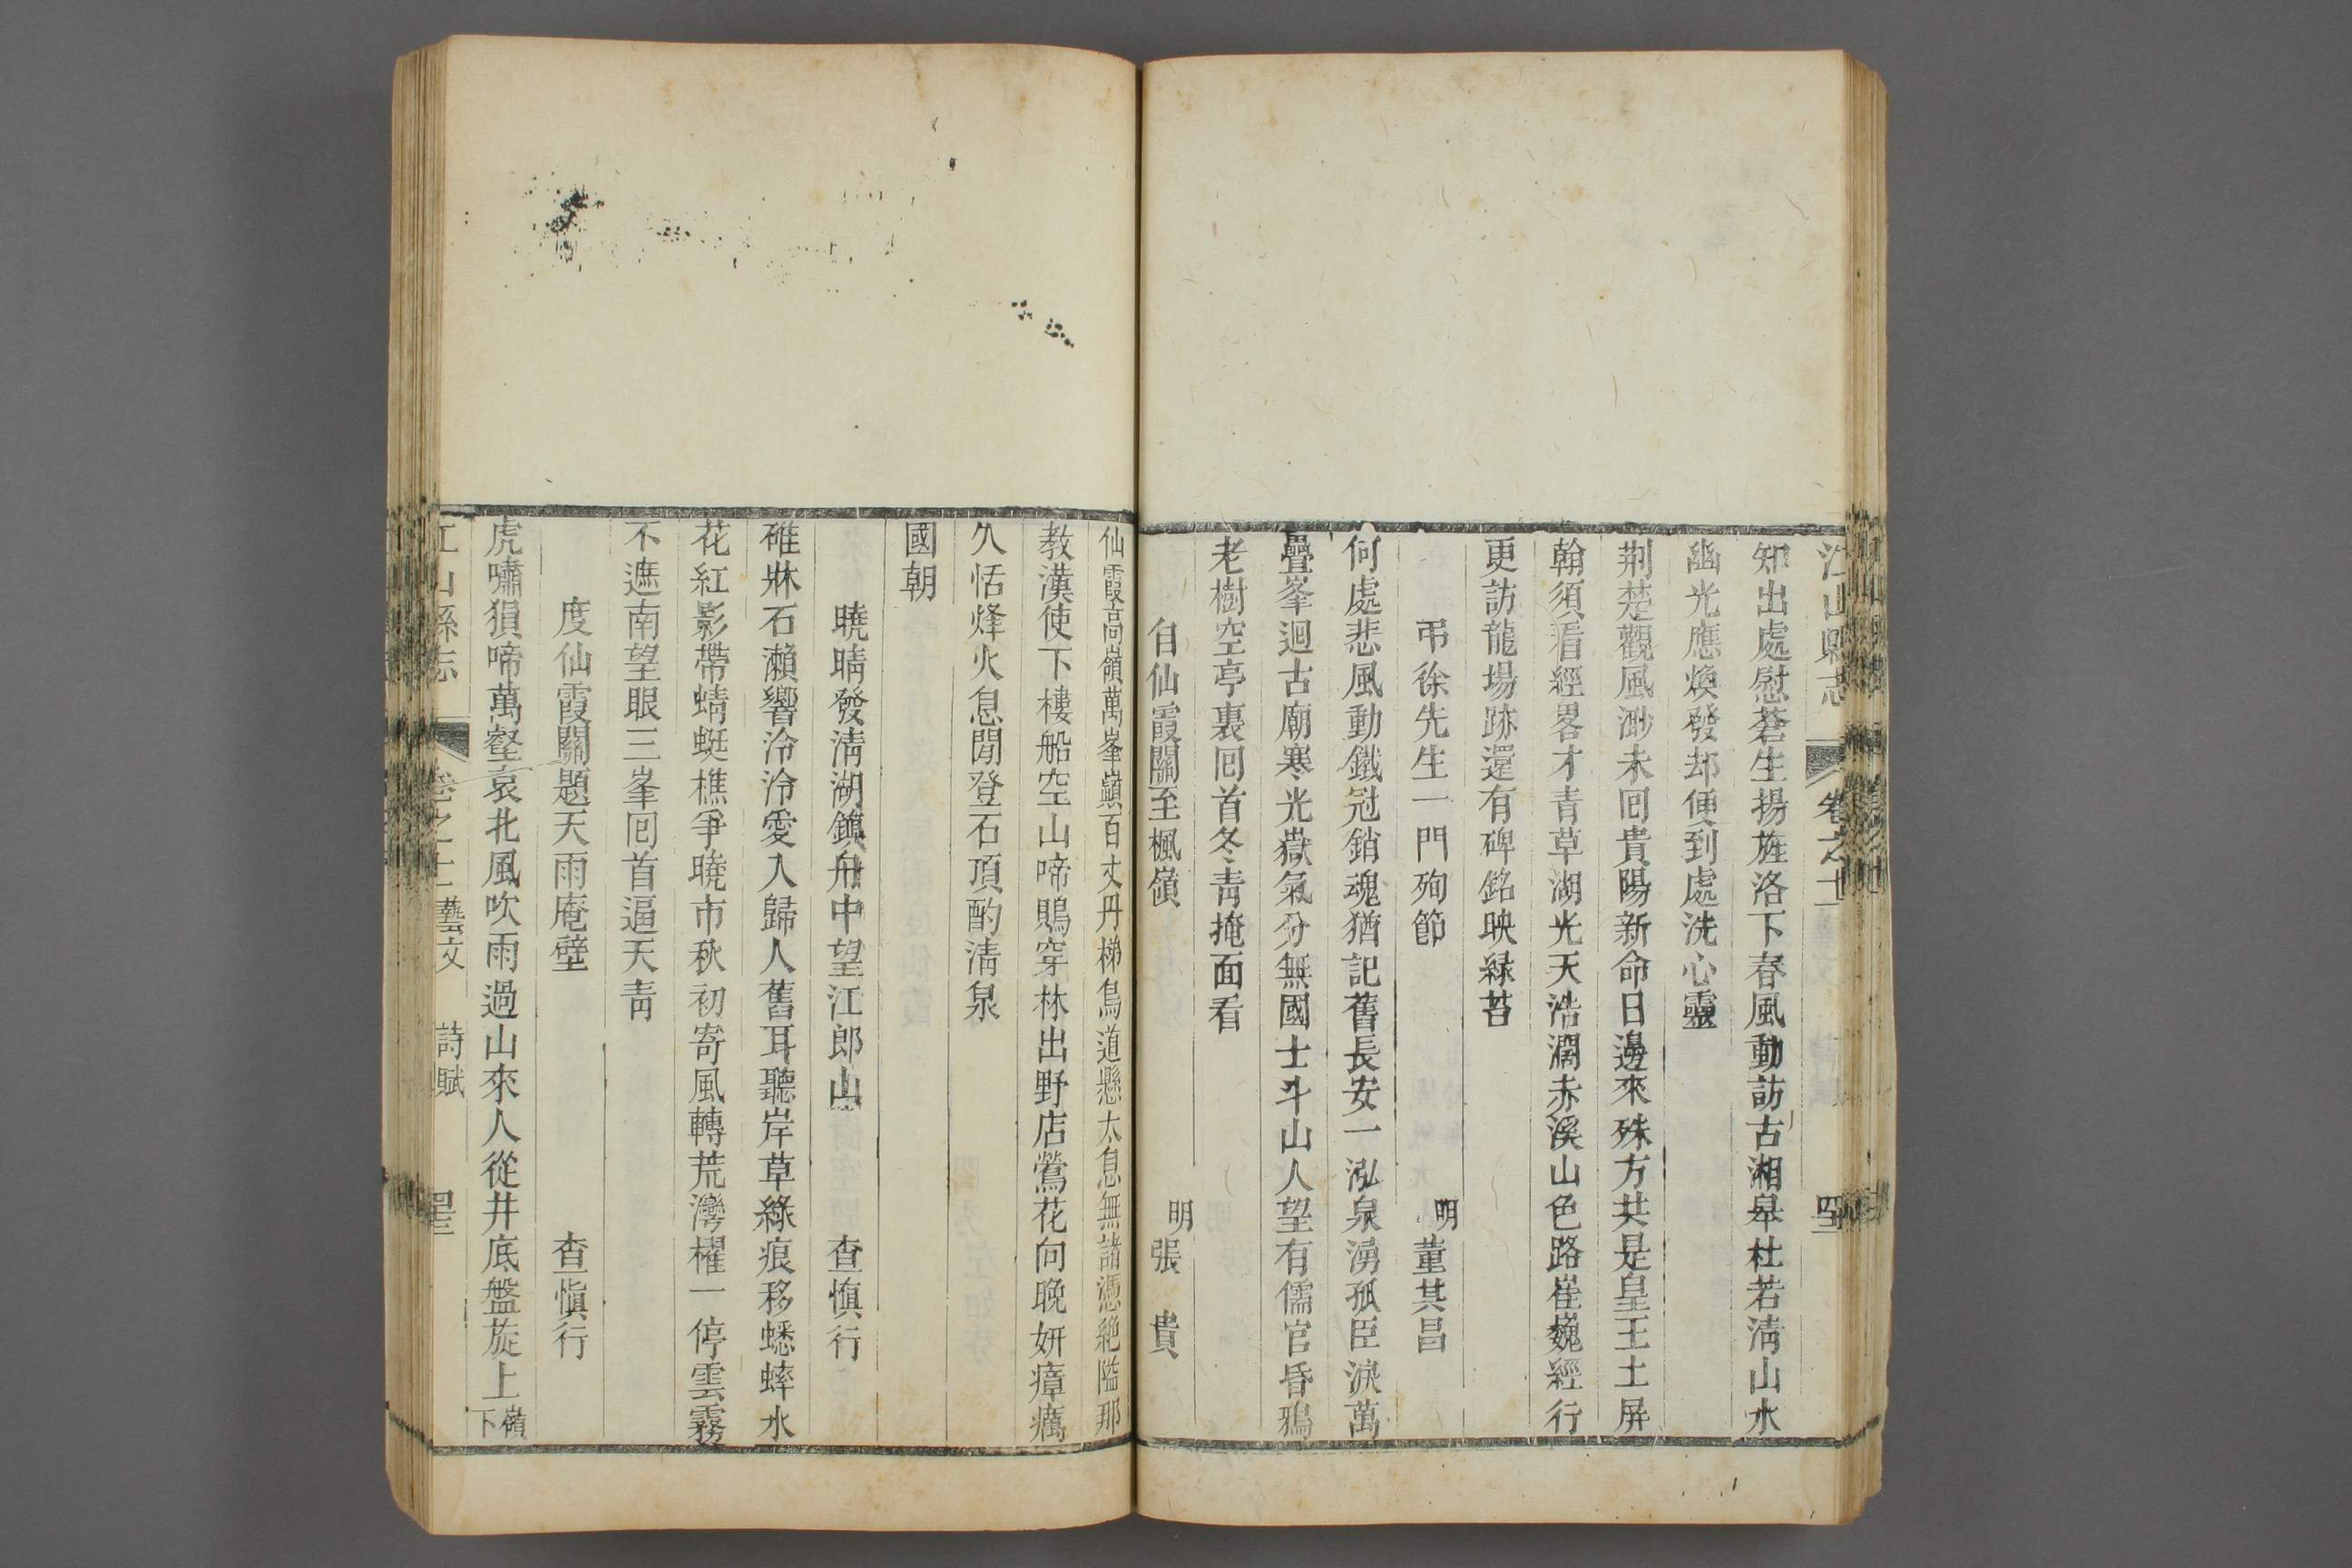 江山縣志 卷之十一
知出處慰蒼生揚旌洛下春風動訪古湘皋杜若淸山水
幽光應煥發却便到處洗心靈
荆楚觀風渺未囘貴陽新命日邊來殊方共是皇王土屏
翰須看經畧才青草湖光天浩濶赤溪山色路崔巍經行
更訪龍場跡還有碑銘映緑苔
弔徐先生一門殉節 明董其昌
何處悲風動鐵冠銷魂猶記舊長安一泓泉湧孤臣淚萬
疊峯迴古廟寒光嶽氣分無國士斗山人望有儒官昏鴉
老樹空亭裏囘首冬靑掩面看
自仙霞關至楓嶺 明張貴
仙霞高嶺萬峯巔百丈丹梯鳥道懸太息無諸憑絶隘那
教漢使下樓船空山啼鵙穿林出野店鶯花向晚妍瘴癘
久恬烽火息閒登石頂酌淸泉
國朝
曉晴發淸湖鎭舟中望江郎山 查愼行
碓牀石瀨響泠泠愛入歸人舊耳聽岸草綠痕移蟋蟀水
花紅影帶蜻蜓樵爭曉市秋初寄風轉荒灣櫂一停雲霧
不遮南望眼三峯囘首逼天靑
度仙霞關題天雨庵壁 查愼行
虎嘯猿啼萬壑哀北風吹雨過山來人從井底盤旋上嶺下
江山縣志 卷之十一藝文 詩賦